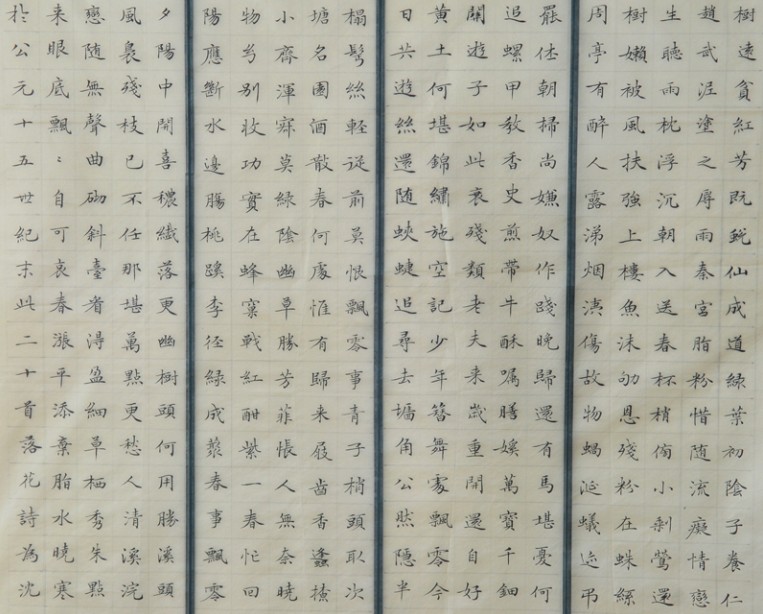 樹遠貧紅芳既蛻仙成道綠葉初陰子養仁
趙武泥塗之辱雨秦宮脂粉惜随流癡情戀
生聽雨枕浮沉朝入送春杯稍傍小剩鶯還
樹嬾被風扶強上樓魚沫劬恩殘粉在蛛絲
周亭有醉人露涕烟洟傷故物蝸涎蟻迹弔
罷休朝掃尚嫌奴作踐晚歸還有馬堪憂何
追螺甲教香史煎帶牛酥囑膳媄萬寶千鈿
開遊子如此衰殘類老夫来歲重開還自好
黃土何堪錦繡施空記少年簪舞處飄零今
日共遊絲還随蛺蜨追尋去墻角公然隱半
榻鬢絲輕從前莫恨飄零事青子梢頭取次
塘名園酒散春何處惟有歸来屐齒香蠭
小齋渾寂莫綠陰幽草勝芳菲悵人無奈曉
物兮别收功實在蜂窠戰紅酣紫一春忙回
陽應斷水邊腸桃蹊李徑綠成叢春事飄零
夕陽中開喜穠纖落更幽樹頭何用勝溪頭
風裊殘枝已不任那堪萬點更愁人清溪浣
戀随無聲曲砌斜臺看得盈細草栖秀朱點
来眼底飄〻自可哀春漲平添棄脂水曉寒
於公元十五世紀末此二十首落花詩為沈